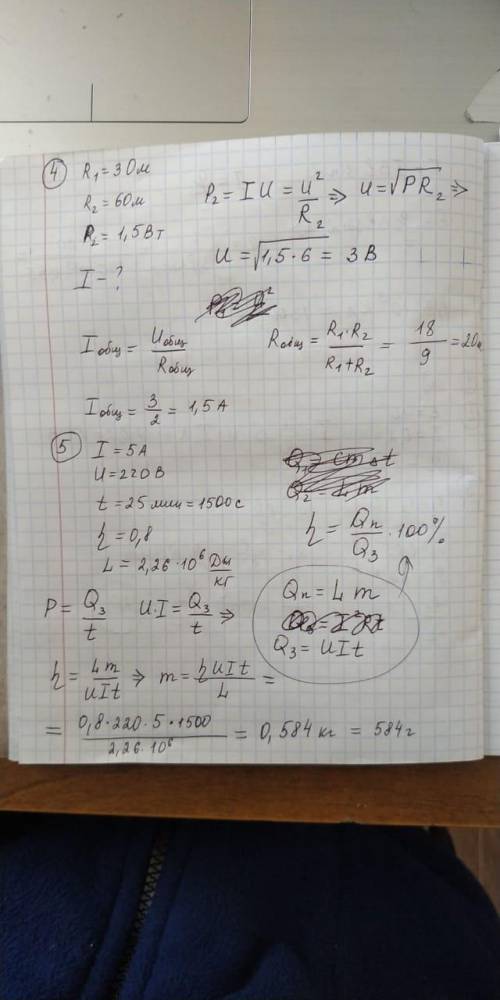 4
R₁ = 3 Ом
R₂ = 6 Ом
P₂ = 1,5 Вт
I - ?
P₂ = I U = U²/R₂ ⇒ U = √PR₂ ⇒
U = √1,5·6 = 3 В
Iобщ = Uобщ/Rобщ
Rобщ = R₁·R₂/R₁+R₂ = 18/9 = 2 Ом
Iобщ = 3/2 = 1,5 А
5
I = 5А
U = 220 В
t = 25 мин = 1500 с
η = 0,8
L = 2,26·10⁶ Дж/кг
Q₁ = cmΔt
Q₂ = Lm
η = Qп/Qз · 100%
P = Qз/t
U·I = Qз/t ⇒
Qп = Lm
Qз = UIt
η = Lm/UIt ⇒ m = ηUIt/L =
= 0,8·220·5·1500/2,26·10⁶ = 0,584 кг = 584 г